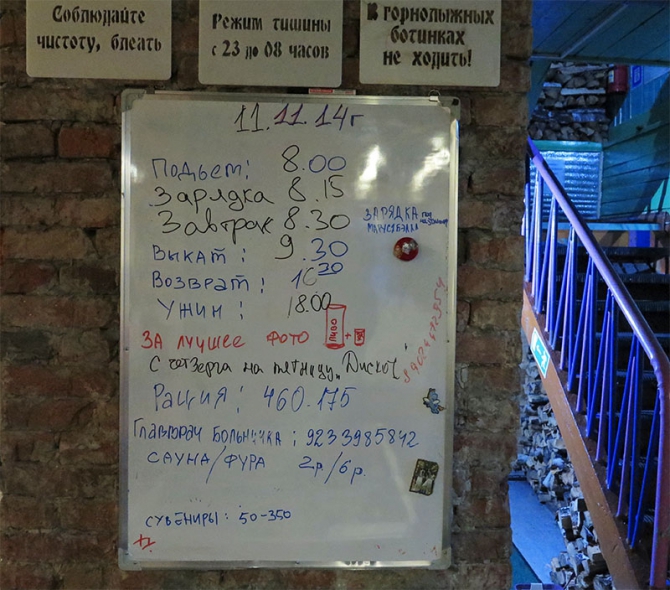 Соблюдайте
чистоту, блеать
Режим тишины
с 23 до 08 часов
В горнолыжных
ботинках
не ходить!
11.11.14г
Подъем: 8.00
Зарядка 8.15
Завтрак 8.30
ЗАРЯДКА
Выкат: 9.30
Возврат: 16 30
Ужин: 18.00
ЗА лучшее фото ПИВО +
С четверга на пятницу "Дискач"
Рация: 460.175
Главврач Больничка: 9233985842
САУНА/ФУРА 2р/6р.
СУВЕНИРЫ: 50-350